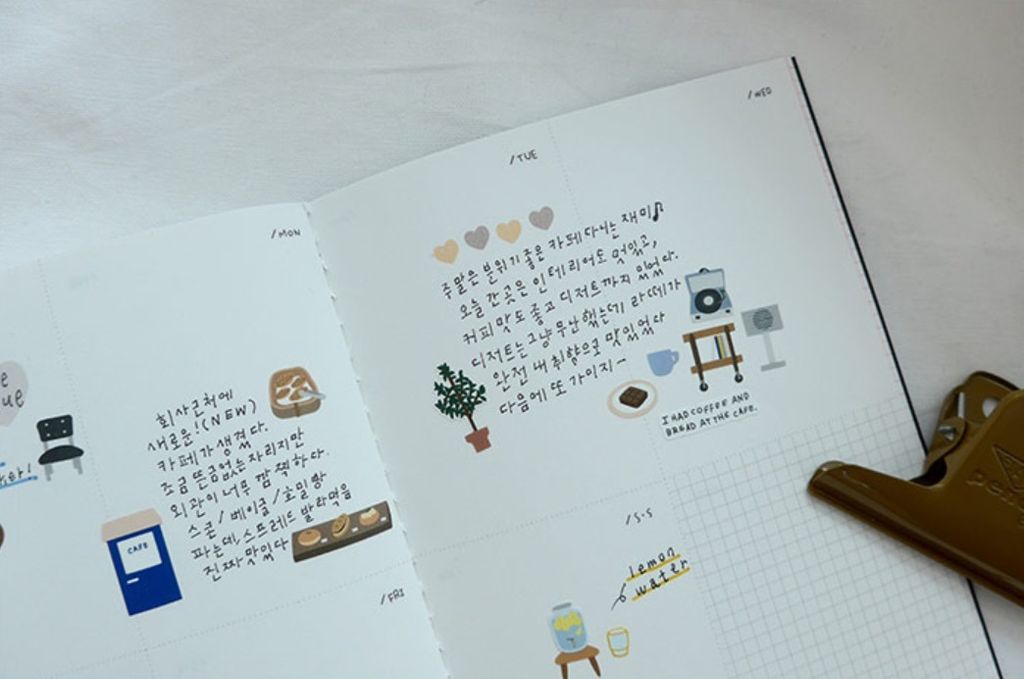 /MON
회사근처에
새로운!(NEW)
카페가 생겼다.
조금 뜬금없는 자리지만
외관이 너무 깜찍하다.
스콘/베이글/호밀빵
파는데, 스프레드 발라먹음
진짜 맛있다
CAFE
/FRI
/TUE
주말은 분위기 좋은 카페다니는 재미♪
오늘 간 곳은 인테리어도 멋있고,
커피맛도 좋고 디저트까지 있었다.
디저트는 그냥 무난했는데 라떼가
완전 내 취향으로 맛있었다
다음에 또 가야지~
I HAD COFFEE AND
BREAD AT THE CAFE.
/WED
/S·S
lemon
water